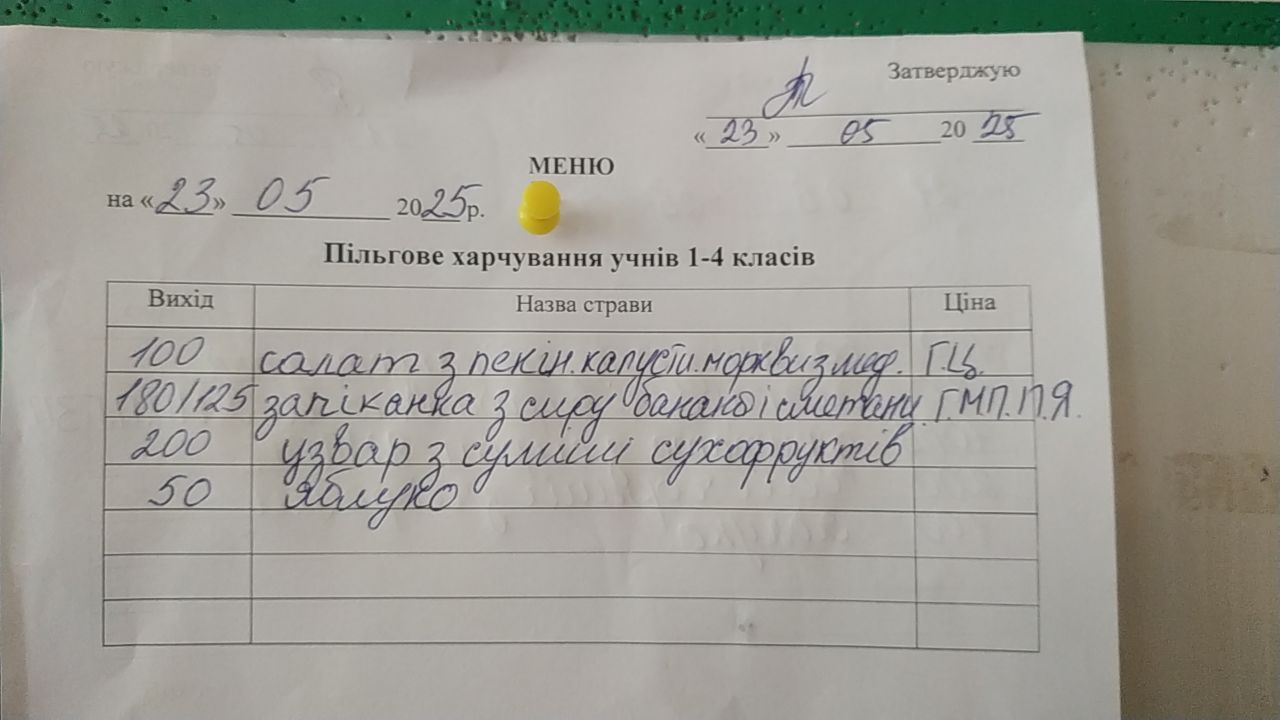 Затверджую
« 23 » 05 20 25
МЕНЮ
на « 23 » 05 2025р.
Пільгове харчування учнів 1-4 класів
Вихід Назва страви Ціна
100 салат з пекін. капусти. моркви з мед. Г.Ц.
180/125 запіканка з сиру банано і сметану Г.МП.П.Я.
200 узвар з суміші сухофруктів
50 яблуко